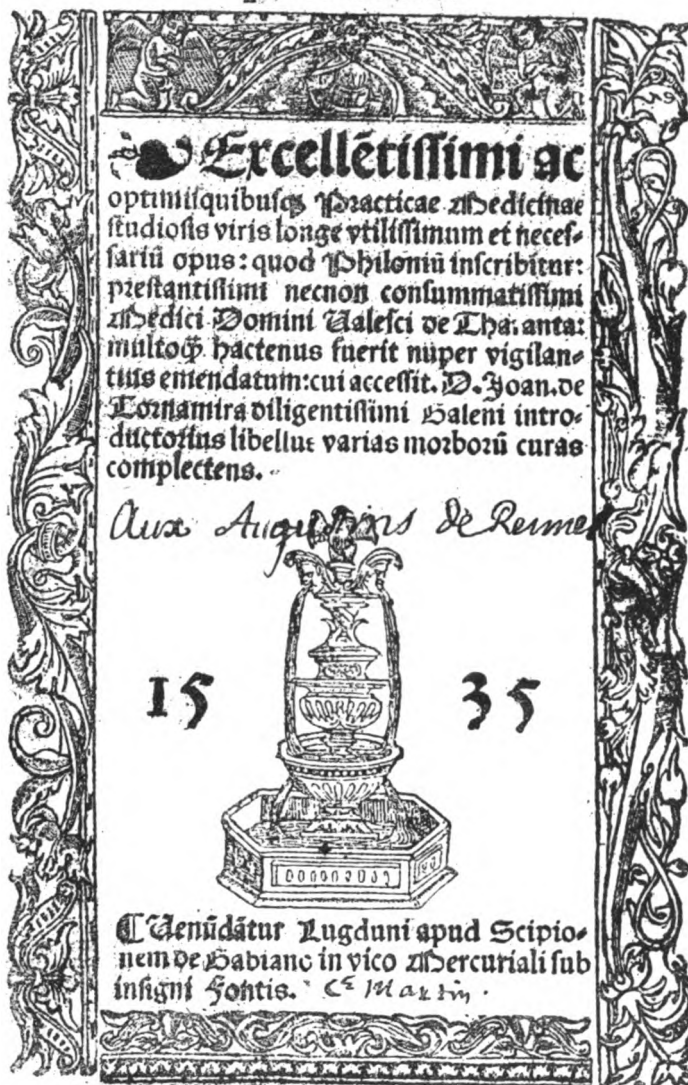 Excellētissimi ac
optimisquibusqꝫ Practicae Medicinae
studiosis viris longe vtilissimum et neces-
sariū opus: quod Philoniū inscribitur:
prestantissimi necnon consummatissimi
Medici Domini Valesci de Tharanta:
multoqꝫ hactenus fuerit nuper vigilan-
tius emendatum: cui accessit. D. Joan. de
Tornamira diligentissimi Galeni intro-
ductorius libellus varias morborū curas
complectens.
Aux Augustins de Reims
15 35
Venūdātur Lugduni apud Scipio-
nem de Gabiano in vico Mercuriali sub
insigni Fontis. Martin.